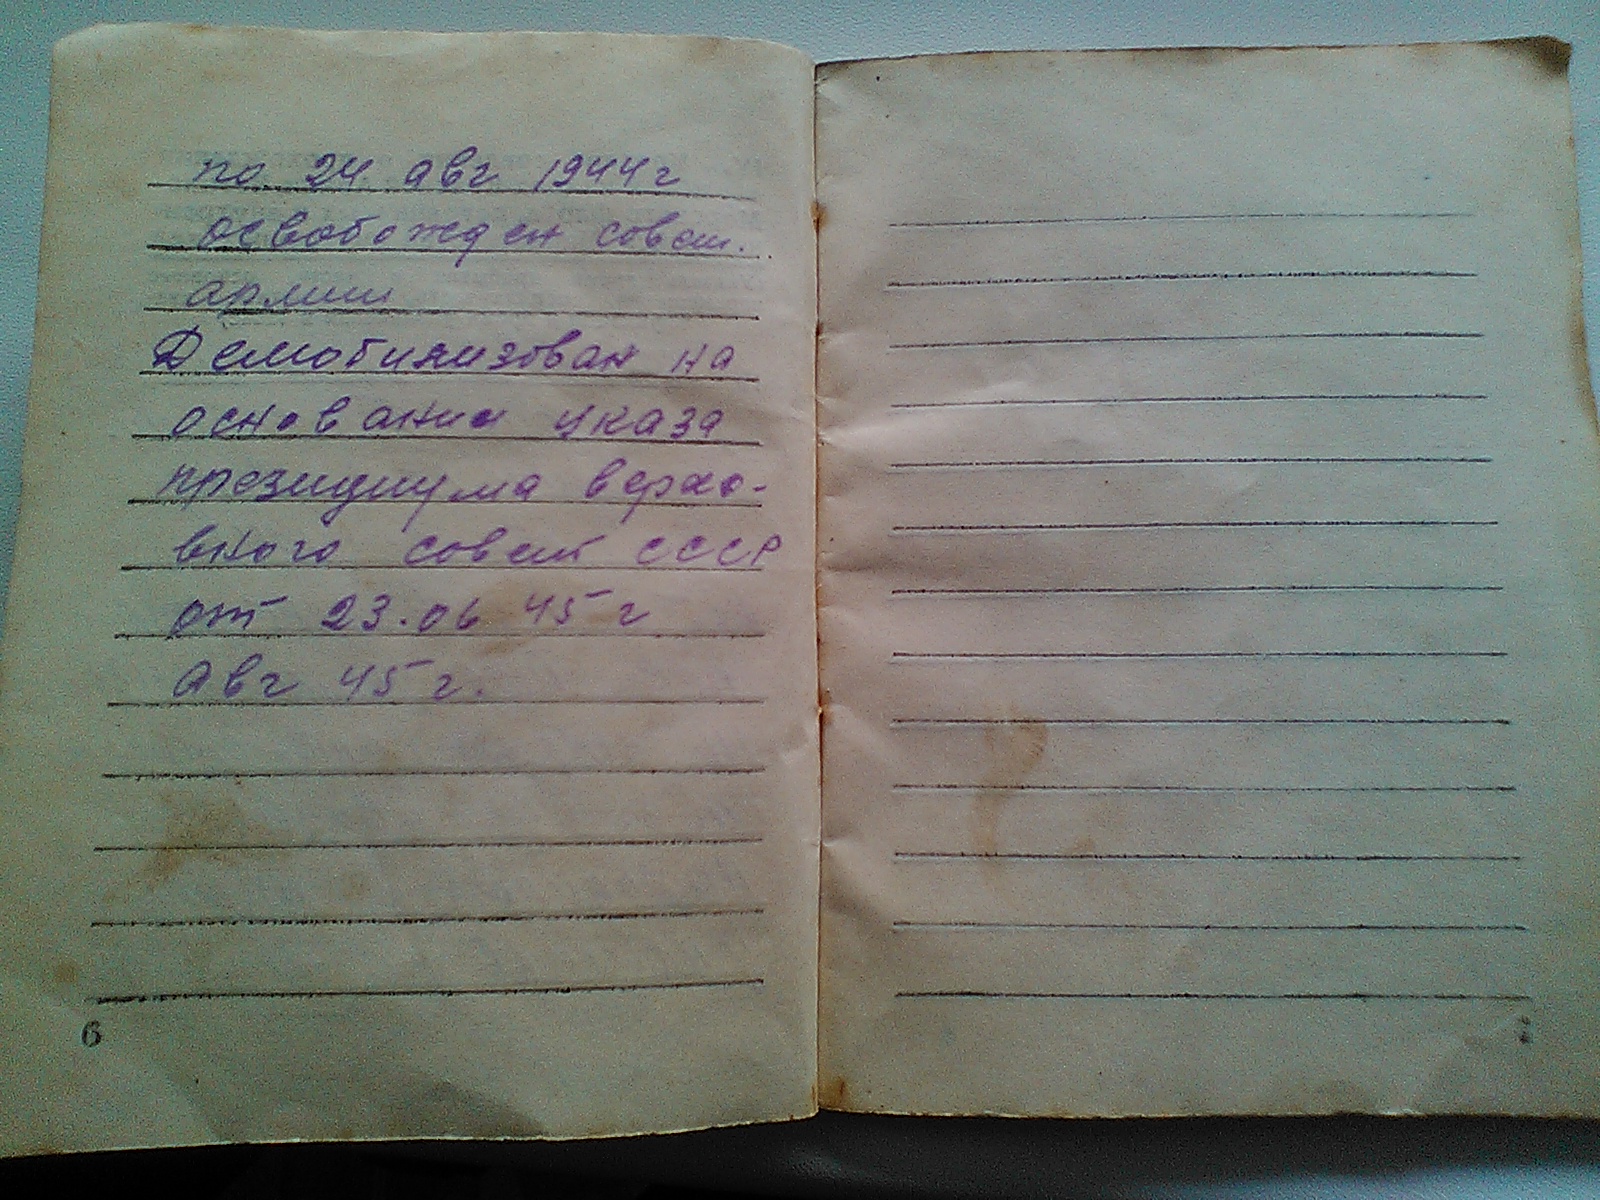 по 24 авг 1944 г
освобожден совет.
армии
Демобилизован на
основании указа
президиума верхо-
вного совет СССР
от 23.06 45 г
авг 45 г.
6